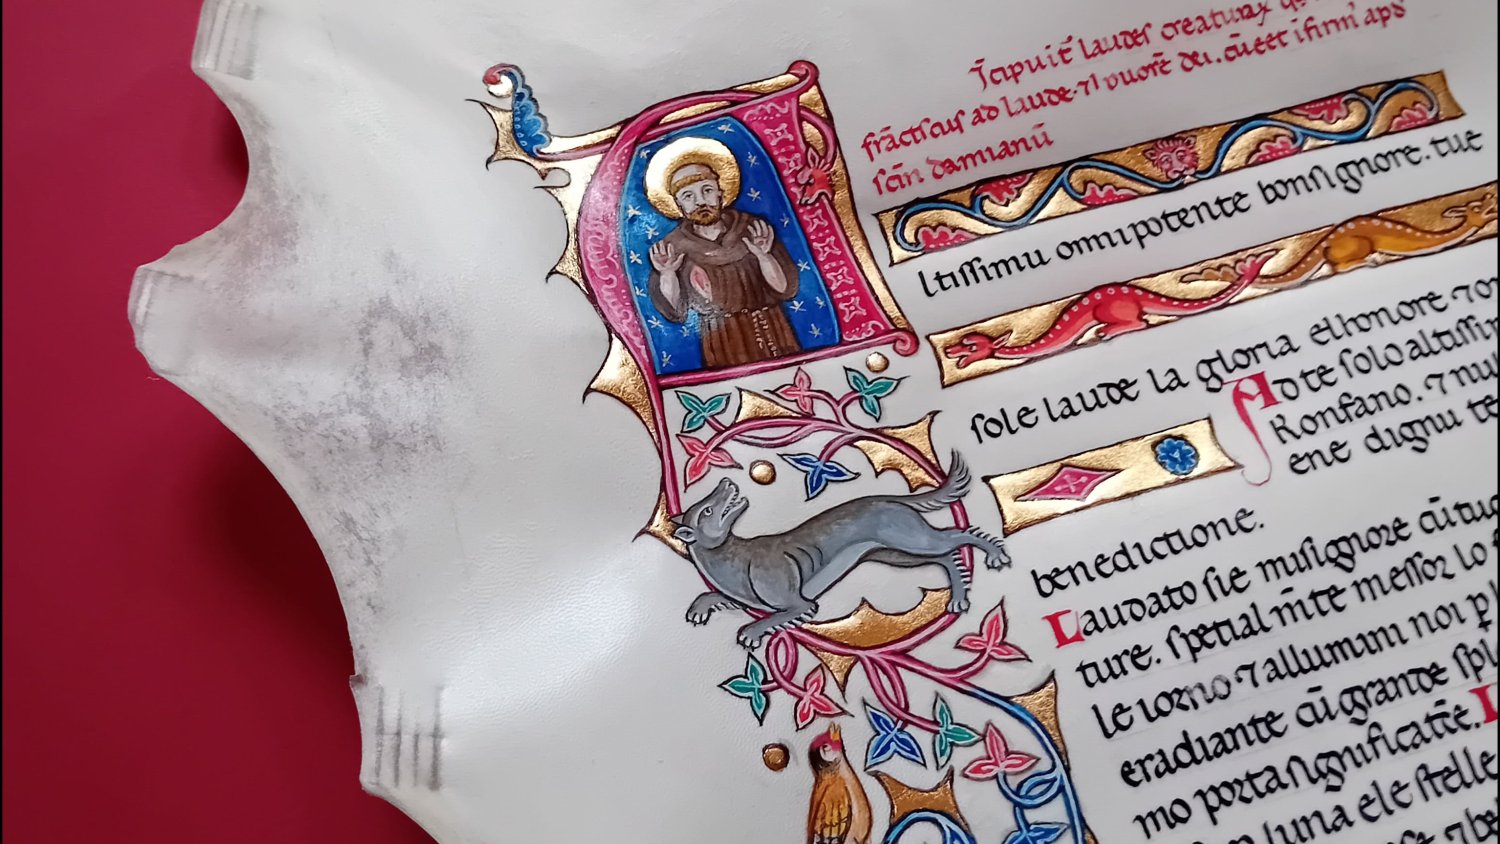 Jcipuit laudes creaturaꝝ
frāciscus ad laudē ⁊ ꝟuorē dei. cū eēt ifirm' apd'
scīn damianū
ltissimu omnipotente bonsignore. tue
sole laude la gloria elhonore ⁊o
Ad te solo altissim
konfano. ⁊ nul
ene dignu te
benedictione.
Laudato sie misignore cū tuc
ture. spetialm̄te messor lo f
le iorno ⁊ allumini noi p
eradiante cū grande spl
mo porta significatiōe. L
luna ele stelle